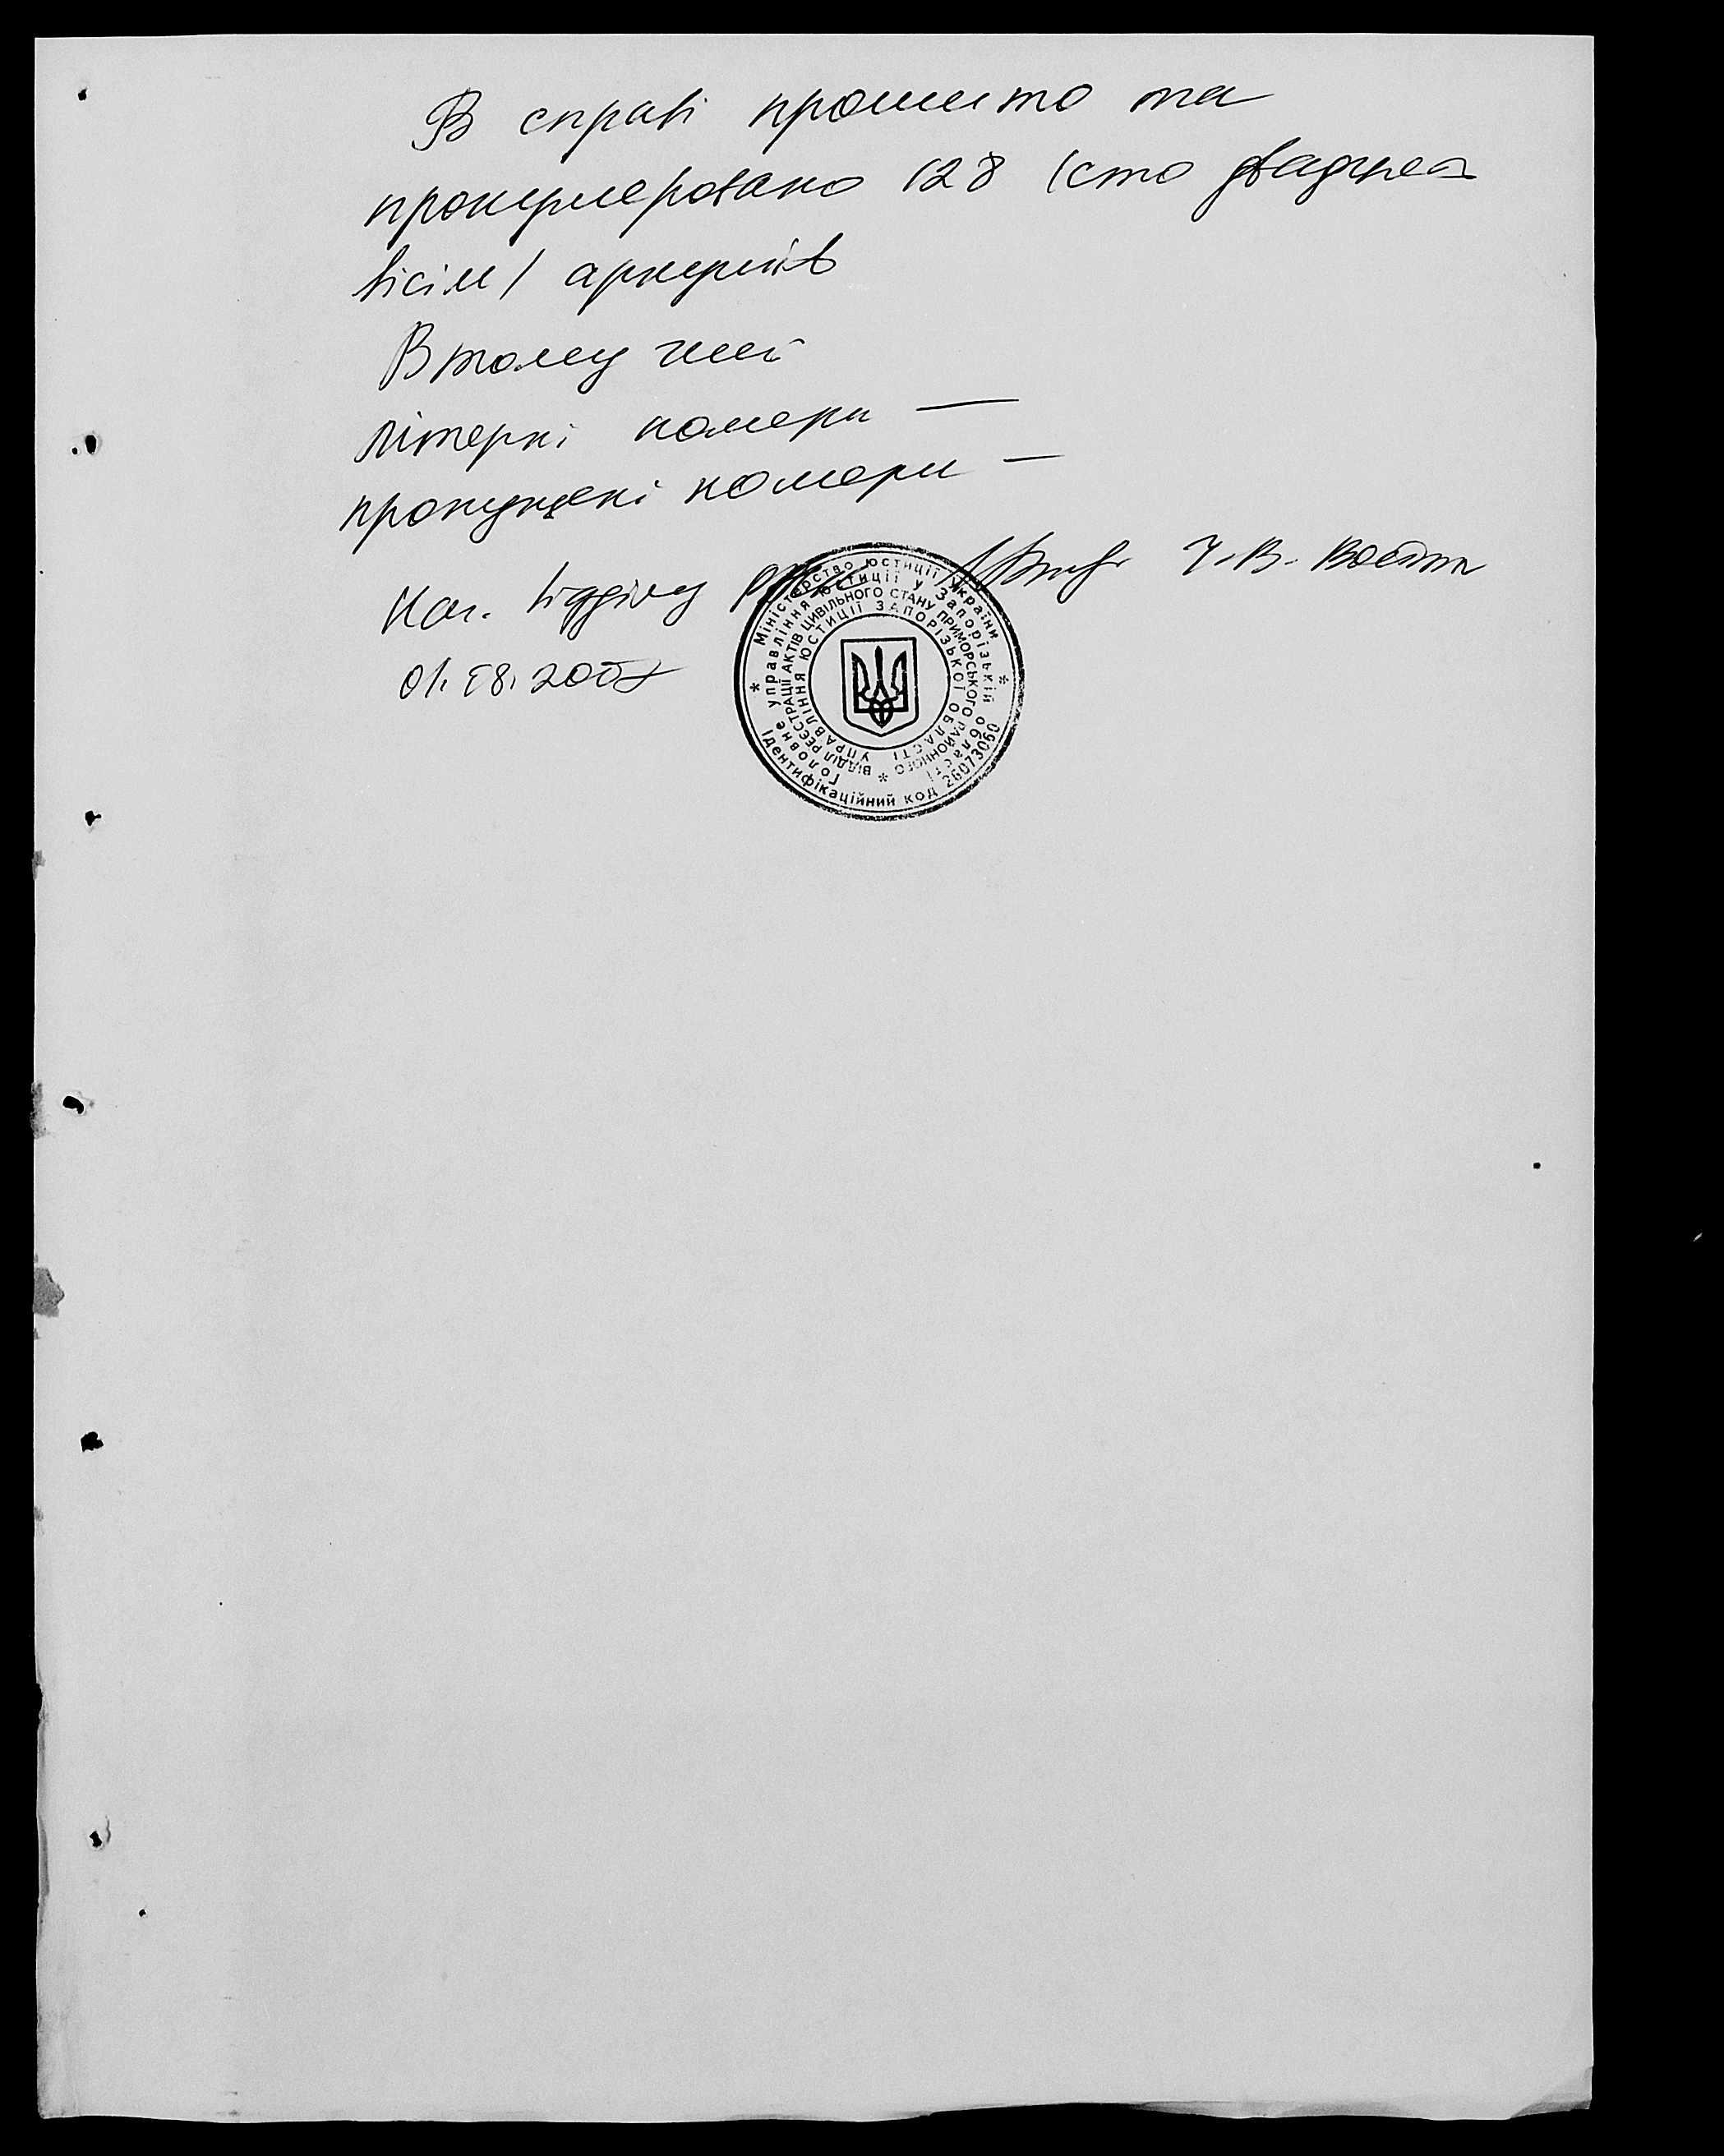 В справі прошито та
пронумеровано 128 (сто двадцять
вісім) аркушів
В тому числі
літерні номери —
пропущені номери —
Нач. відділу
01.08.2007
Міністерство юстиції України
* Ідентифікаційний код 26073060 *
Головне управління юстиції у Запорізькій області
ВІДДІЛ РЕЄСТРАЦІЇ АКТІВ ЦИВІЛЬНОГО СТАНУ ПРИМОРСЬКОГО РАЙОННОГО *
УПРАВЛІННЯ ЮСТИЦІЇ ЗАПОРІЗЬКОЇ ОБЛАСТІ